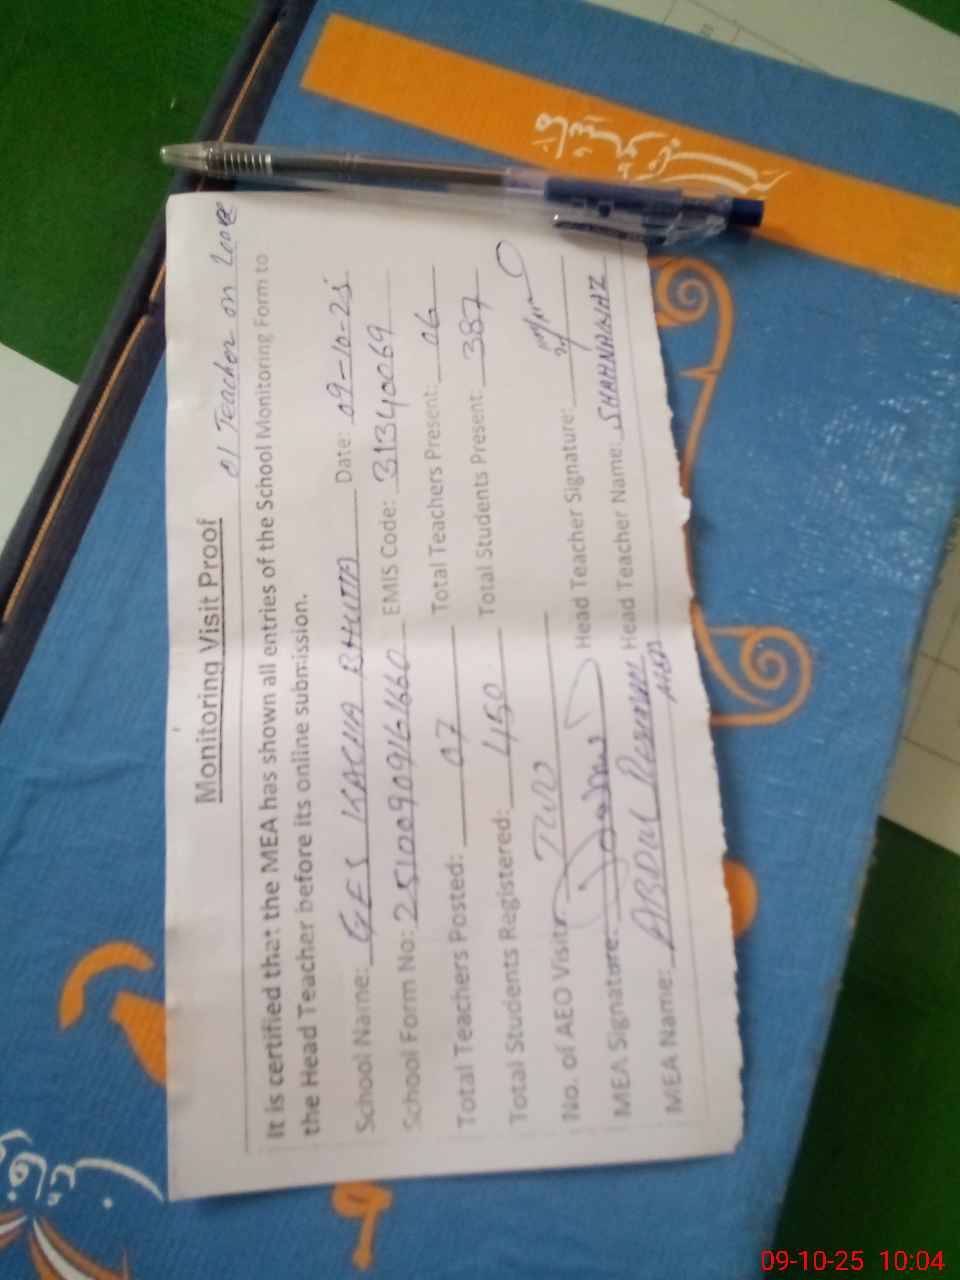 01 Teacher on leave
Monitoring Visit Proof
It is certified that the MEA has shown all entries of the School Monitoring Form to
the Head Teacher before its online submission.
School Name: GES KACHA BHUTTA Date: 09-10-25
School Form No: 25100909161660 EMIS Code: 31340069
Total Teachers Posted: 07 Total Teachers Present: 06
Total Students Registered: 450 Total Students Present: 387
No. of AEO Visit: TWO
MEA Signature: Head Teacher Signature:
MEA Name: ABDUL Head Teacher Name: SHAHNANAZ
09-10-25 10:04